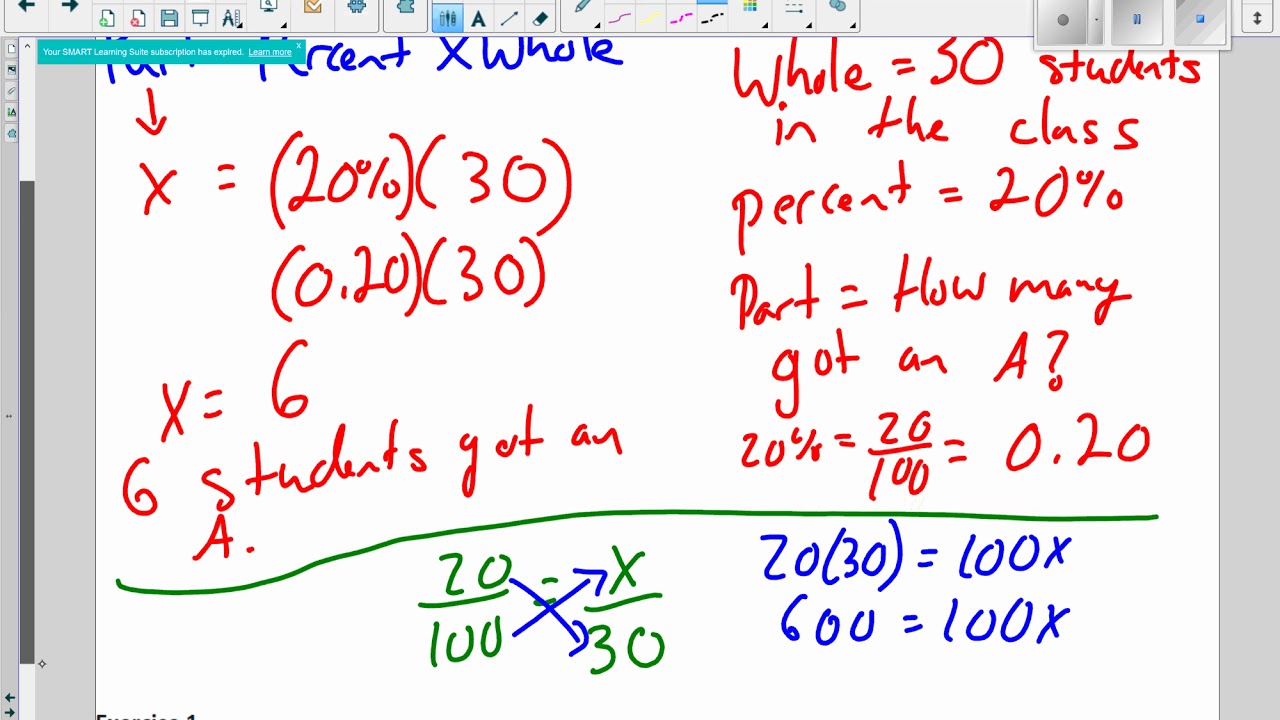 Your SMART Learning Suite subscription has expired. Learn more x
Percent X Whole
x = (20%)(30)
(0.20)(30)
x = 6
6 students got an
A.
Whole = 30 students
in the class
percent = 20%
Part = How many
got an A?
20% = 20/100 = 0.20
20/100 = x/30
20(30) = 100x
600 = 100x